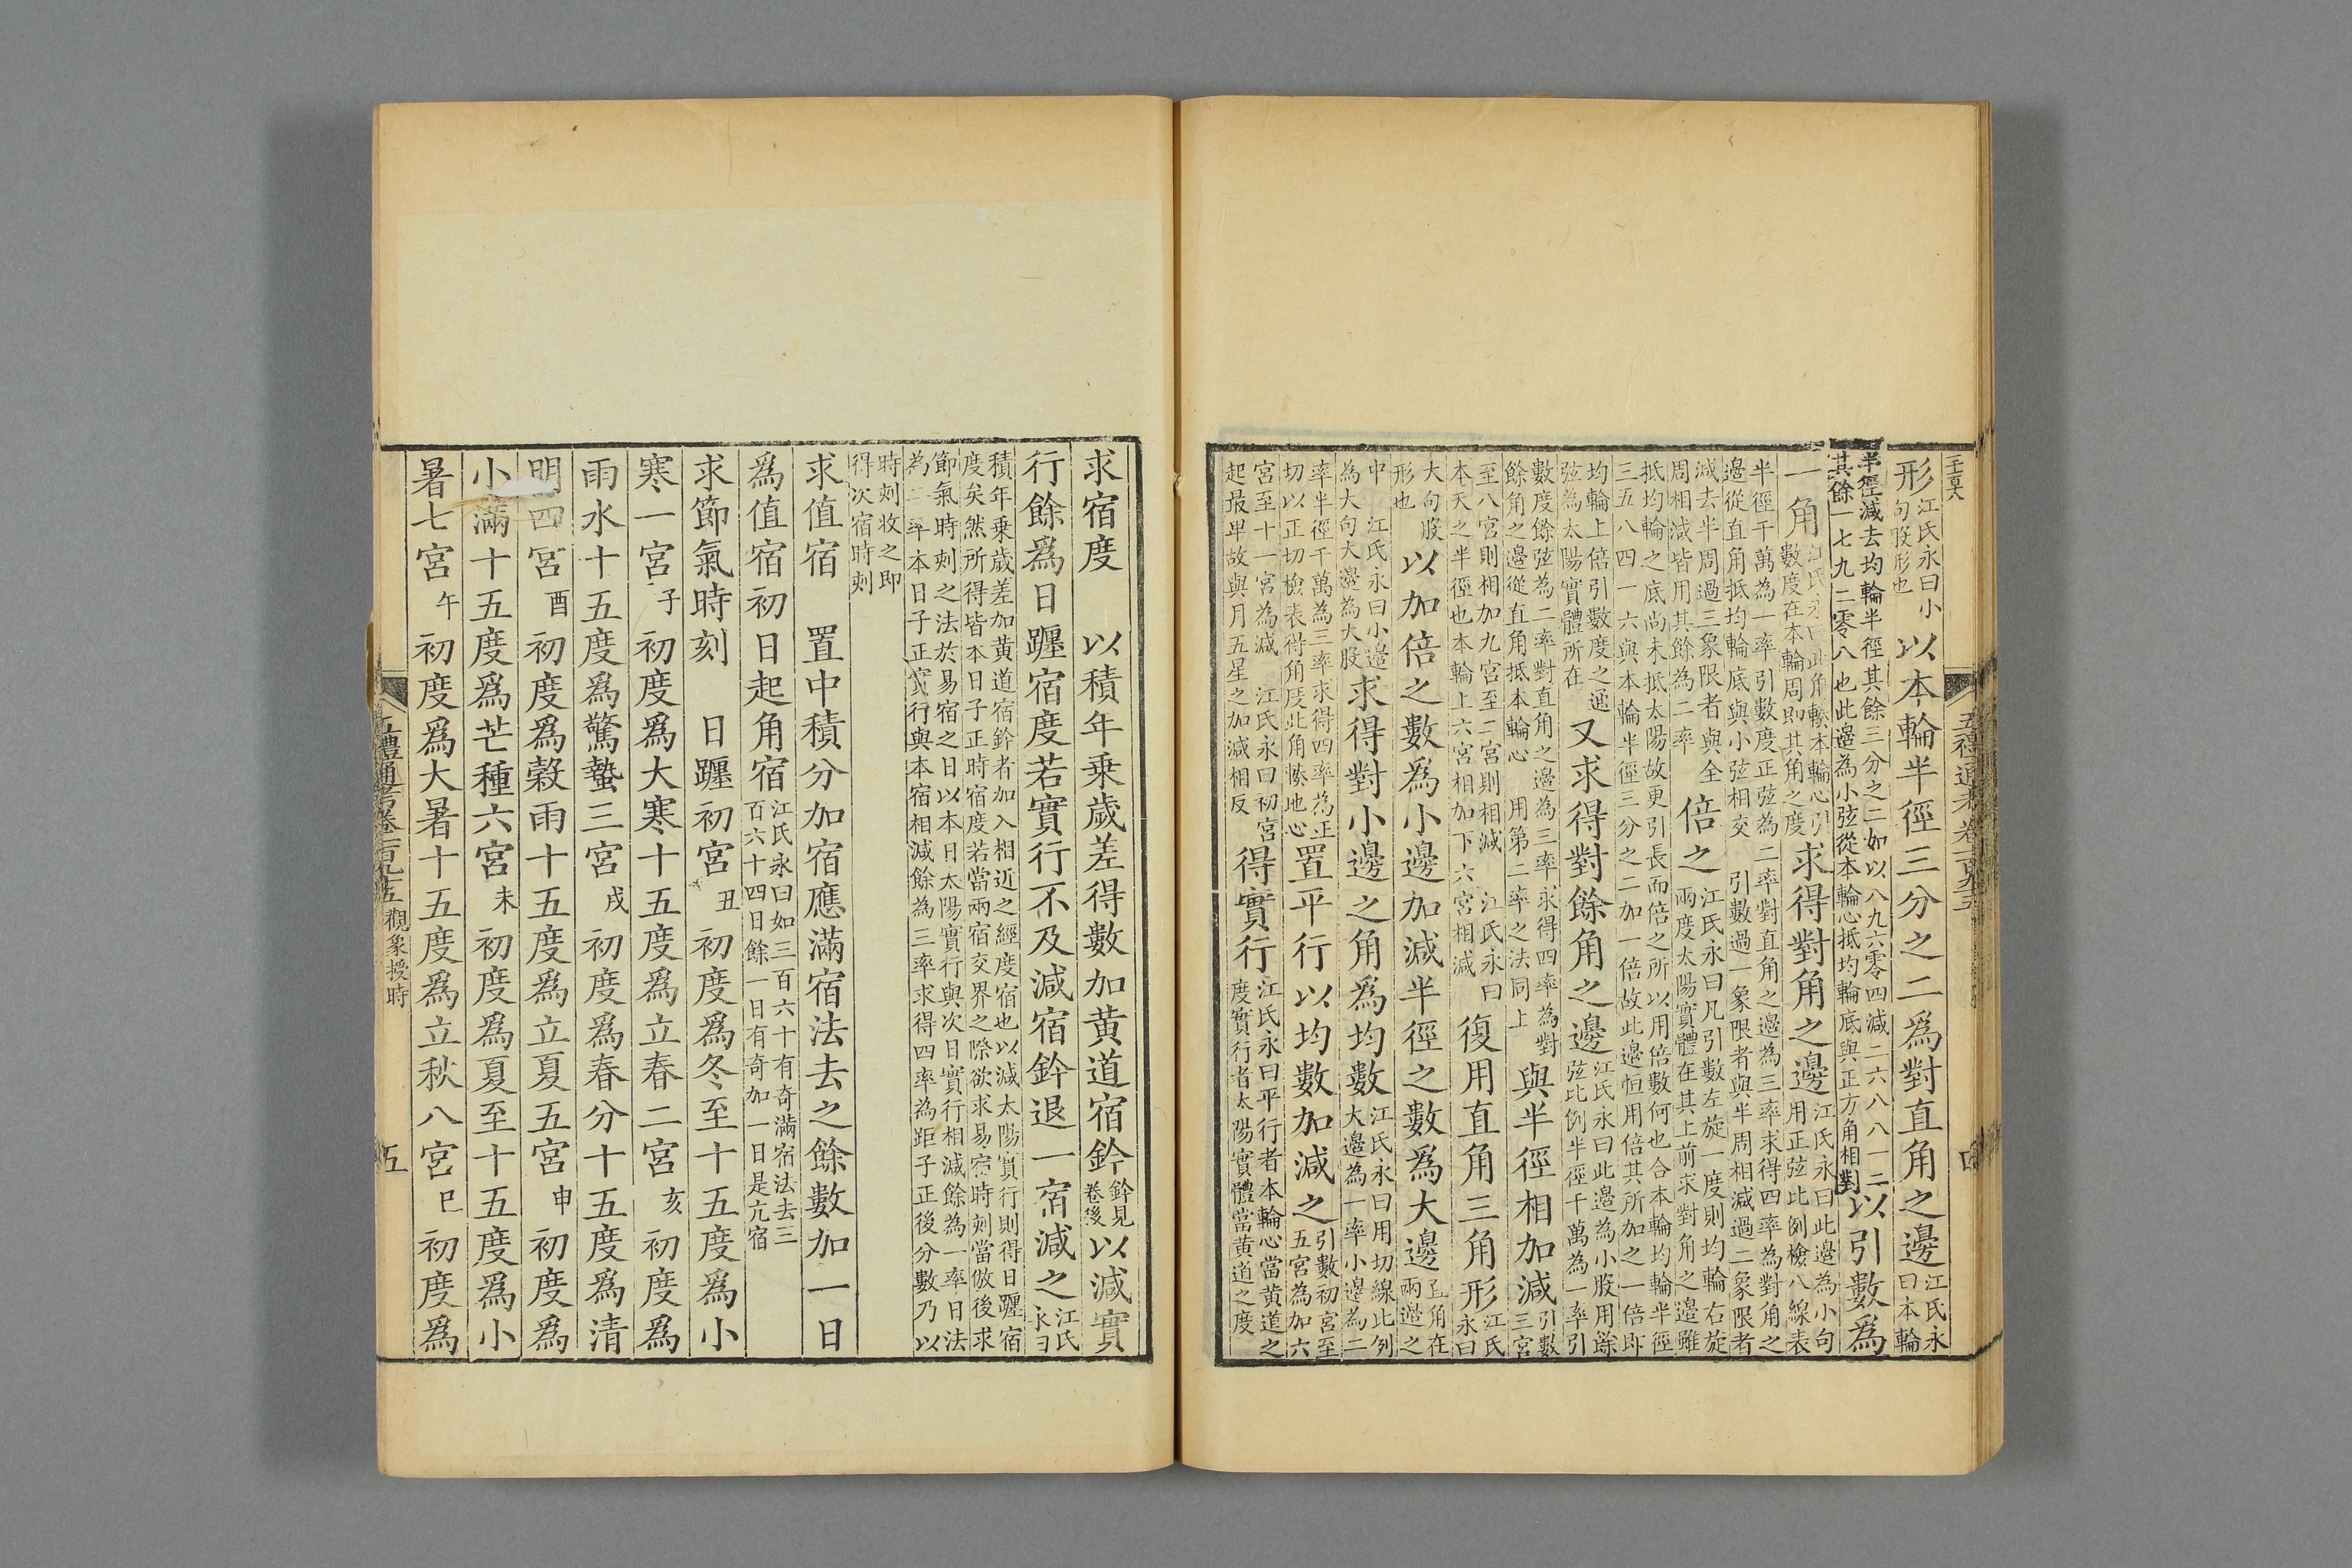 形江氏永曰小句股形也以本輪半徑三分之二爲對直角之邊江氏永曰本輪
半徑減去均輪半徑其餘三分之二如以八九六零四減二六八八一二其餘一七九二零八也此邊為小弦從本輪心抵均輪底與正方角相對以引數爲
一角江氏永曰此角輳本輪心引數度在本輪周即其角之度求得對角之邊江氏永曰此邊為小句用正弦比例檢八線表
半徑千萬為一率引數度正弦為二率對直角之邊為三率求得四率為對角之邊從直角抵均輪底與小弦相交 引數過一象限者與半周相減過二象限者
減去半周過三象限者與全周相減皆用其餘為二率倍之江氏永曰凡引數左旋一度則均輪右旋兩度太陽實體在其上前求對角之邊雖
抵均輪之底尚未抵太陽故更引長而倍之所以用倍數何也合本輪均輪半徑三五八四一六與本輪半徑三分之二加一倍故此邊恒用倍其所加之一倍即
均輪上倍引數度之通弦為太陽實體所在又求得對餘角之邊江氏永曰此邊為小股用餘弦比例半徑千萬為一率引
數度餘弦為二率對直角之邊為三率求得四率為對餘角之邊從直角抵本輪心 用第二率之法同上與半徑相加減引數三宮
至八宮則相加九宮至二宮則相減 江氏永曰本天之半徑也本輪上六宮相加下六宮相減復用直角三角形江氏永曰
大句股形也以加倍之數爲小邊加減半徑之數爲大邊直角在兩邊之
中 江氏永曰小邊為大句大邊為大股求得對小邊之角爲均數江氏永曰用切線比例大邊為一率小邊為二
率半徑千萬為三率求得四率為正切以正切檢表得角度此角輳地心置平行以均數加減之引數初宮至五宮為加六
宮至十一宮為減 江氏永曰初宮起最卑故與月五星之加減相反得實行江氏永曰平行者本輪心當黃道之度實行者太陽實體當黃道之度
五禮通考卷一百九十五
四
求宿度 以積年乗歲差得數加黃道宿鈐鈐見卷後以減實
行餘爲日躔宿度若實行不及減宿鈐退一宿減之江氏永曰
積年乗歲差加黃道宿鈐者加入相近之經度宿也以減太陽實行則得日躔宿度矣然所得皆本日子正時宿度若當兩宿交界之際欲求易宿時刻當倣後求
節氣時刻之法於易宿之日以本日太陽實行與次日實行相減餘為一率日法為二率本日子正實行與本宿相減餘為三率求得四率為距子正後分數乃以
時刻收之即得次宿時刻
求值宿 置中積分加宿應滿宿法去之餘數加一日
爲值宿初日起角宿江氏永曰如三百六十有奇滿宿法去三百六十四日餘一日有奇加一日是亢宿
求節氣時刻 日躔初宮丑初度爲冬至十五度爲小
寒一宮子初度爲大寒十五度爲立春二宮亥初度爲
雨水十五度爲驚蟄三宮戌初度爲春分十五度爲清
明四宮酉初度爲穀雨十五度爲立夏五宮申初度爲
小滿十五度爲芒種六宮未初度爲夏至十五度爲小
暑七宮午初度爲大暑十五度爲立秋八宮巳初度爲
五禮通考卷一百九十五 觀象授時
五